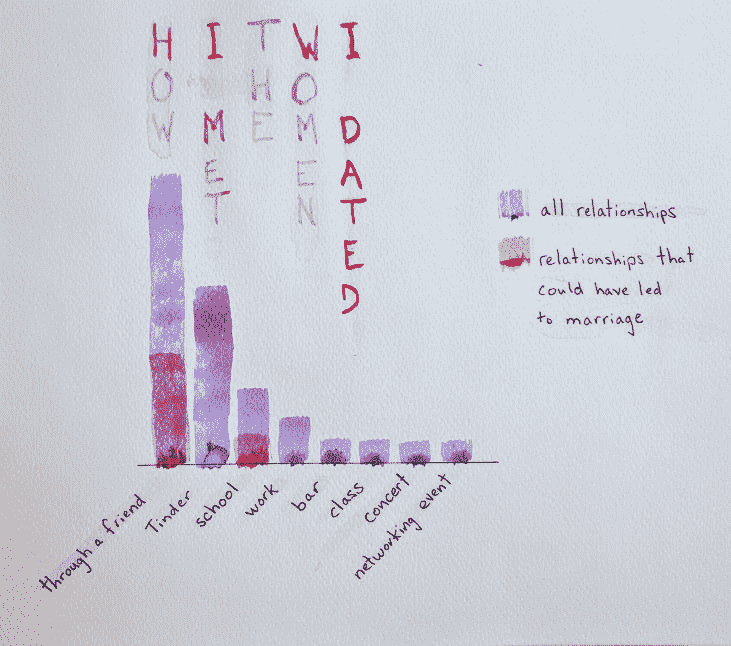 HOW I MET THE WOMEN I DATED
all relationships
relationships that
could have led
to marriage
through a friend
Tinder
school
work
bar
class
concert
networking event